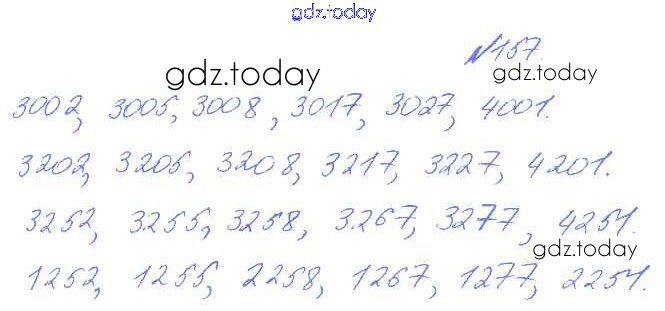 gdz.today
№157.
gdz.today
gdz.today
3002, 3005, 3008, 3017, 3027, 4001.
3202, 3205, 3208, 3217, 3227, 4201.
3252, 3255, 3258, 3267, 3277, 4251.
gdz.today
1252, 1255, 2258, 1267, 1277, 2251.